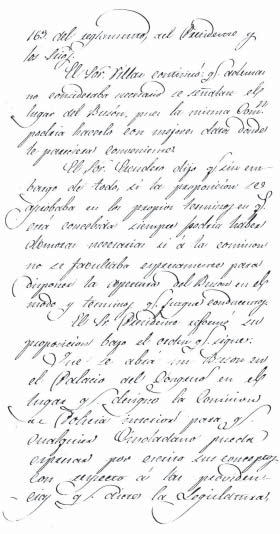 163 del reglamento, del Presidente y
los Srios.
El Sor. Villar continuó: q. demas
no consideraba necesario se señalase el
lugar del Buson, pues la misma Comon
podria hacerlo con mejores datos donde
le pareciera conveniente.
El Sor. dijo q. sin em-
bargo de todo, si la proposicion se
aprobaba en los propios terminos en q.
está concebida siempre podria haber
demoras necesarias si á la comision
no se facultaba espresamente para
disponer la apertura del Buson en el
modo y terminos q. juzgue conducentes.
El Sr. Presidente reformó su
proposicion bajo el orden q. sigue:
Que se abra un Buson en
el Palacio del Congreso en el
lugar q. designe la Comision
de Policia interior para q.
cualquier Ciudadano pueda
espresar por escrito sus conceptos
con respecto á las
y q. dicte la Legislatura,